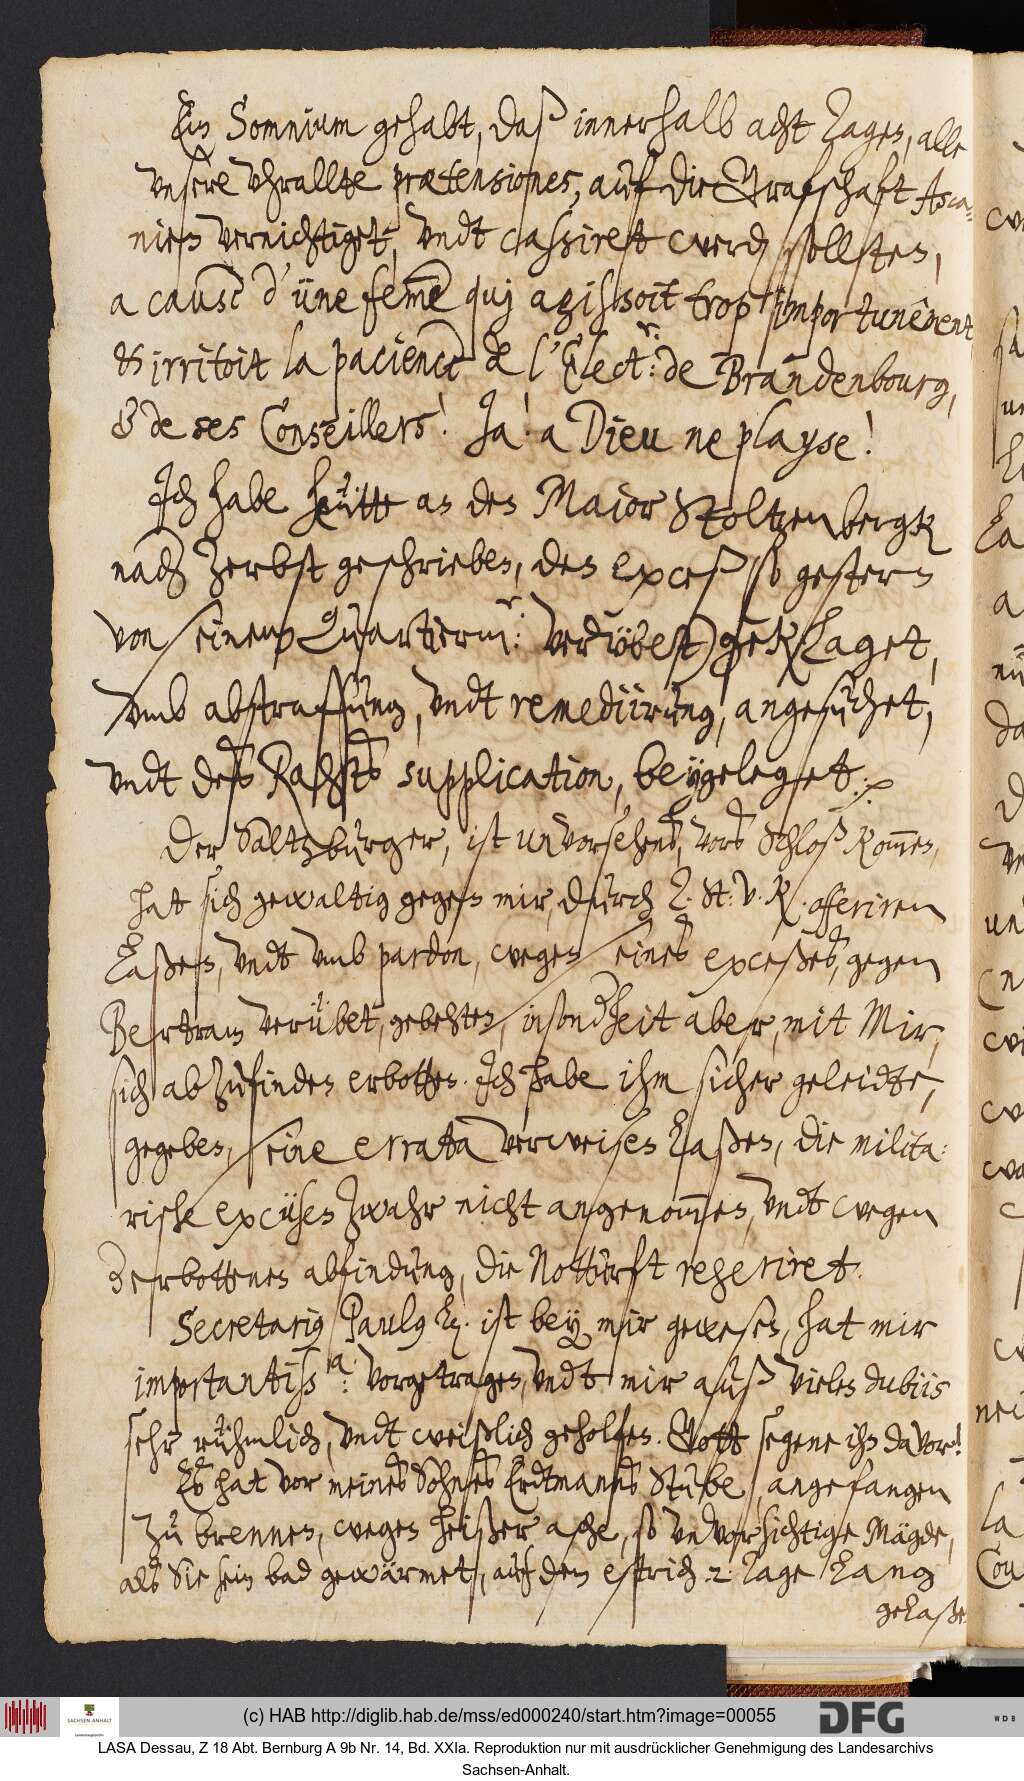 Ein Somnium gehabt, daß innerhalb acht Tagen, alle
vnsere vhrallte prætensiones, auf die Grafschaft Asca-
nien vernichtiget, vndt cassiret werden sollten,
a cause d'üne feme quj agissoit trop importunêment
& irritoit la pacience de l'Elect.r: de Brandenbourg,
& de ses Conseillers! Ja! a Dieu ne playse!
Ich habe heütte an den Major Stoltzenbergk
nach Zerbst geschrieben, den exceß so gestern
von seinem Quartierm.r: verübet) geklaget,
vmb abstraffung, vndt remediirung, angesuchet,
vndt deß Rahts supplication, beygeleget.
Der Saltzburger, ist unvorsehens, vors Schloß kommen,
hat sich gewaltig gegen mir, durch T. St: v. K. offeriren
laßen, vndt vmb pardon, wegen seines exceßes, gegen
Bertram verübet, gebehten, insonderheit aber, mit Mir,
sich abzufinden erbotten. Ich habe ihm sicher geleidte,
gegeben, seine errata verweisen laßen, die milita:
rische excüsen zwahr nicht angenommen, vndt wegen
der erbottenen abfindung, die Notturft regeriret.
Secretarius Paulus L. ist bey mir gewesen, hat mir
importantiss.a: vorgetragen, vndt mir auß vielen dubiis
sehr rühmlich, vndt weißlich geholfen. Gott segene ihn davor!
Es hat vor meines Sohnes Erdtmanns Stube, angefangen
zu brennen, wegen heißer asche, so vnvorsichtige Mägde,
als Sie sein bad gewärmet, auf dem estrich 2. Tage lang
gelaße
(c) HAB http://diglib.hab.de/mss/ed000240/start.htm?image=00055
SACHSEN-ANHALT
DFG
WDB
LASA Dessau, Z 18 Abt. Bernburg A 9b Nr. 14, Bd. XXIa. Reproduktion nur mit ausdrücklicher Genehmigung des Landesarchivs
Sachsen-Anhalt.